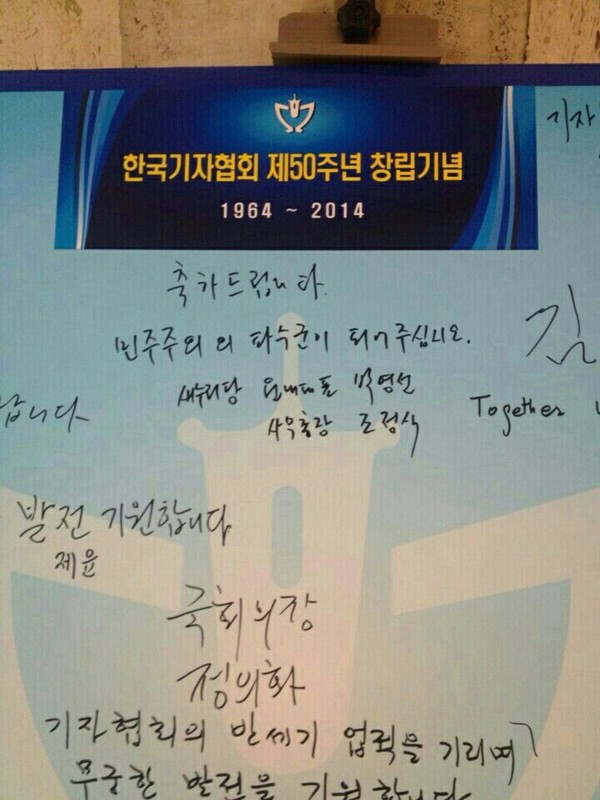 한국기자협회 제50주년 창립기념
1964 ~ 2014
기자
축하드립니다.
민주주의의 파수군이 되어주십시오.
김
원내대표 박영선
사무총장 조정식
Together
발전 기원합니다
제윤
국회의장
정의화
기자협회의 반세기 업적을 기리며
무궁한 발전을 기원합니다